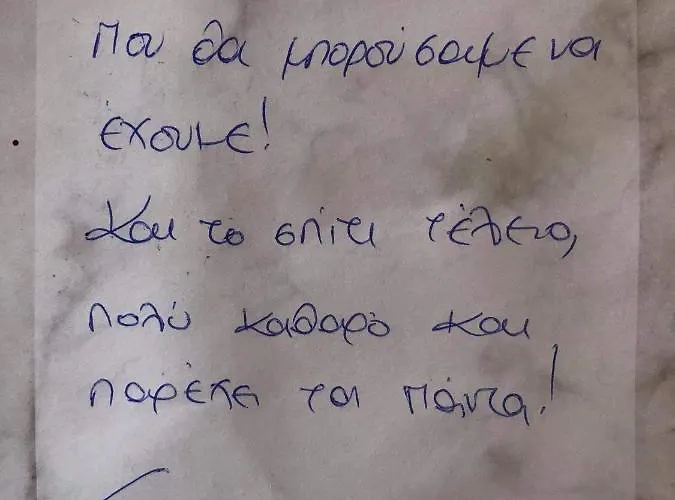 Που θα μπορούσαμε να
έχουμε!
Και το σπίτι τέλειο,
πολύ καθαρό και
παρέχει τα πάντα!